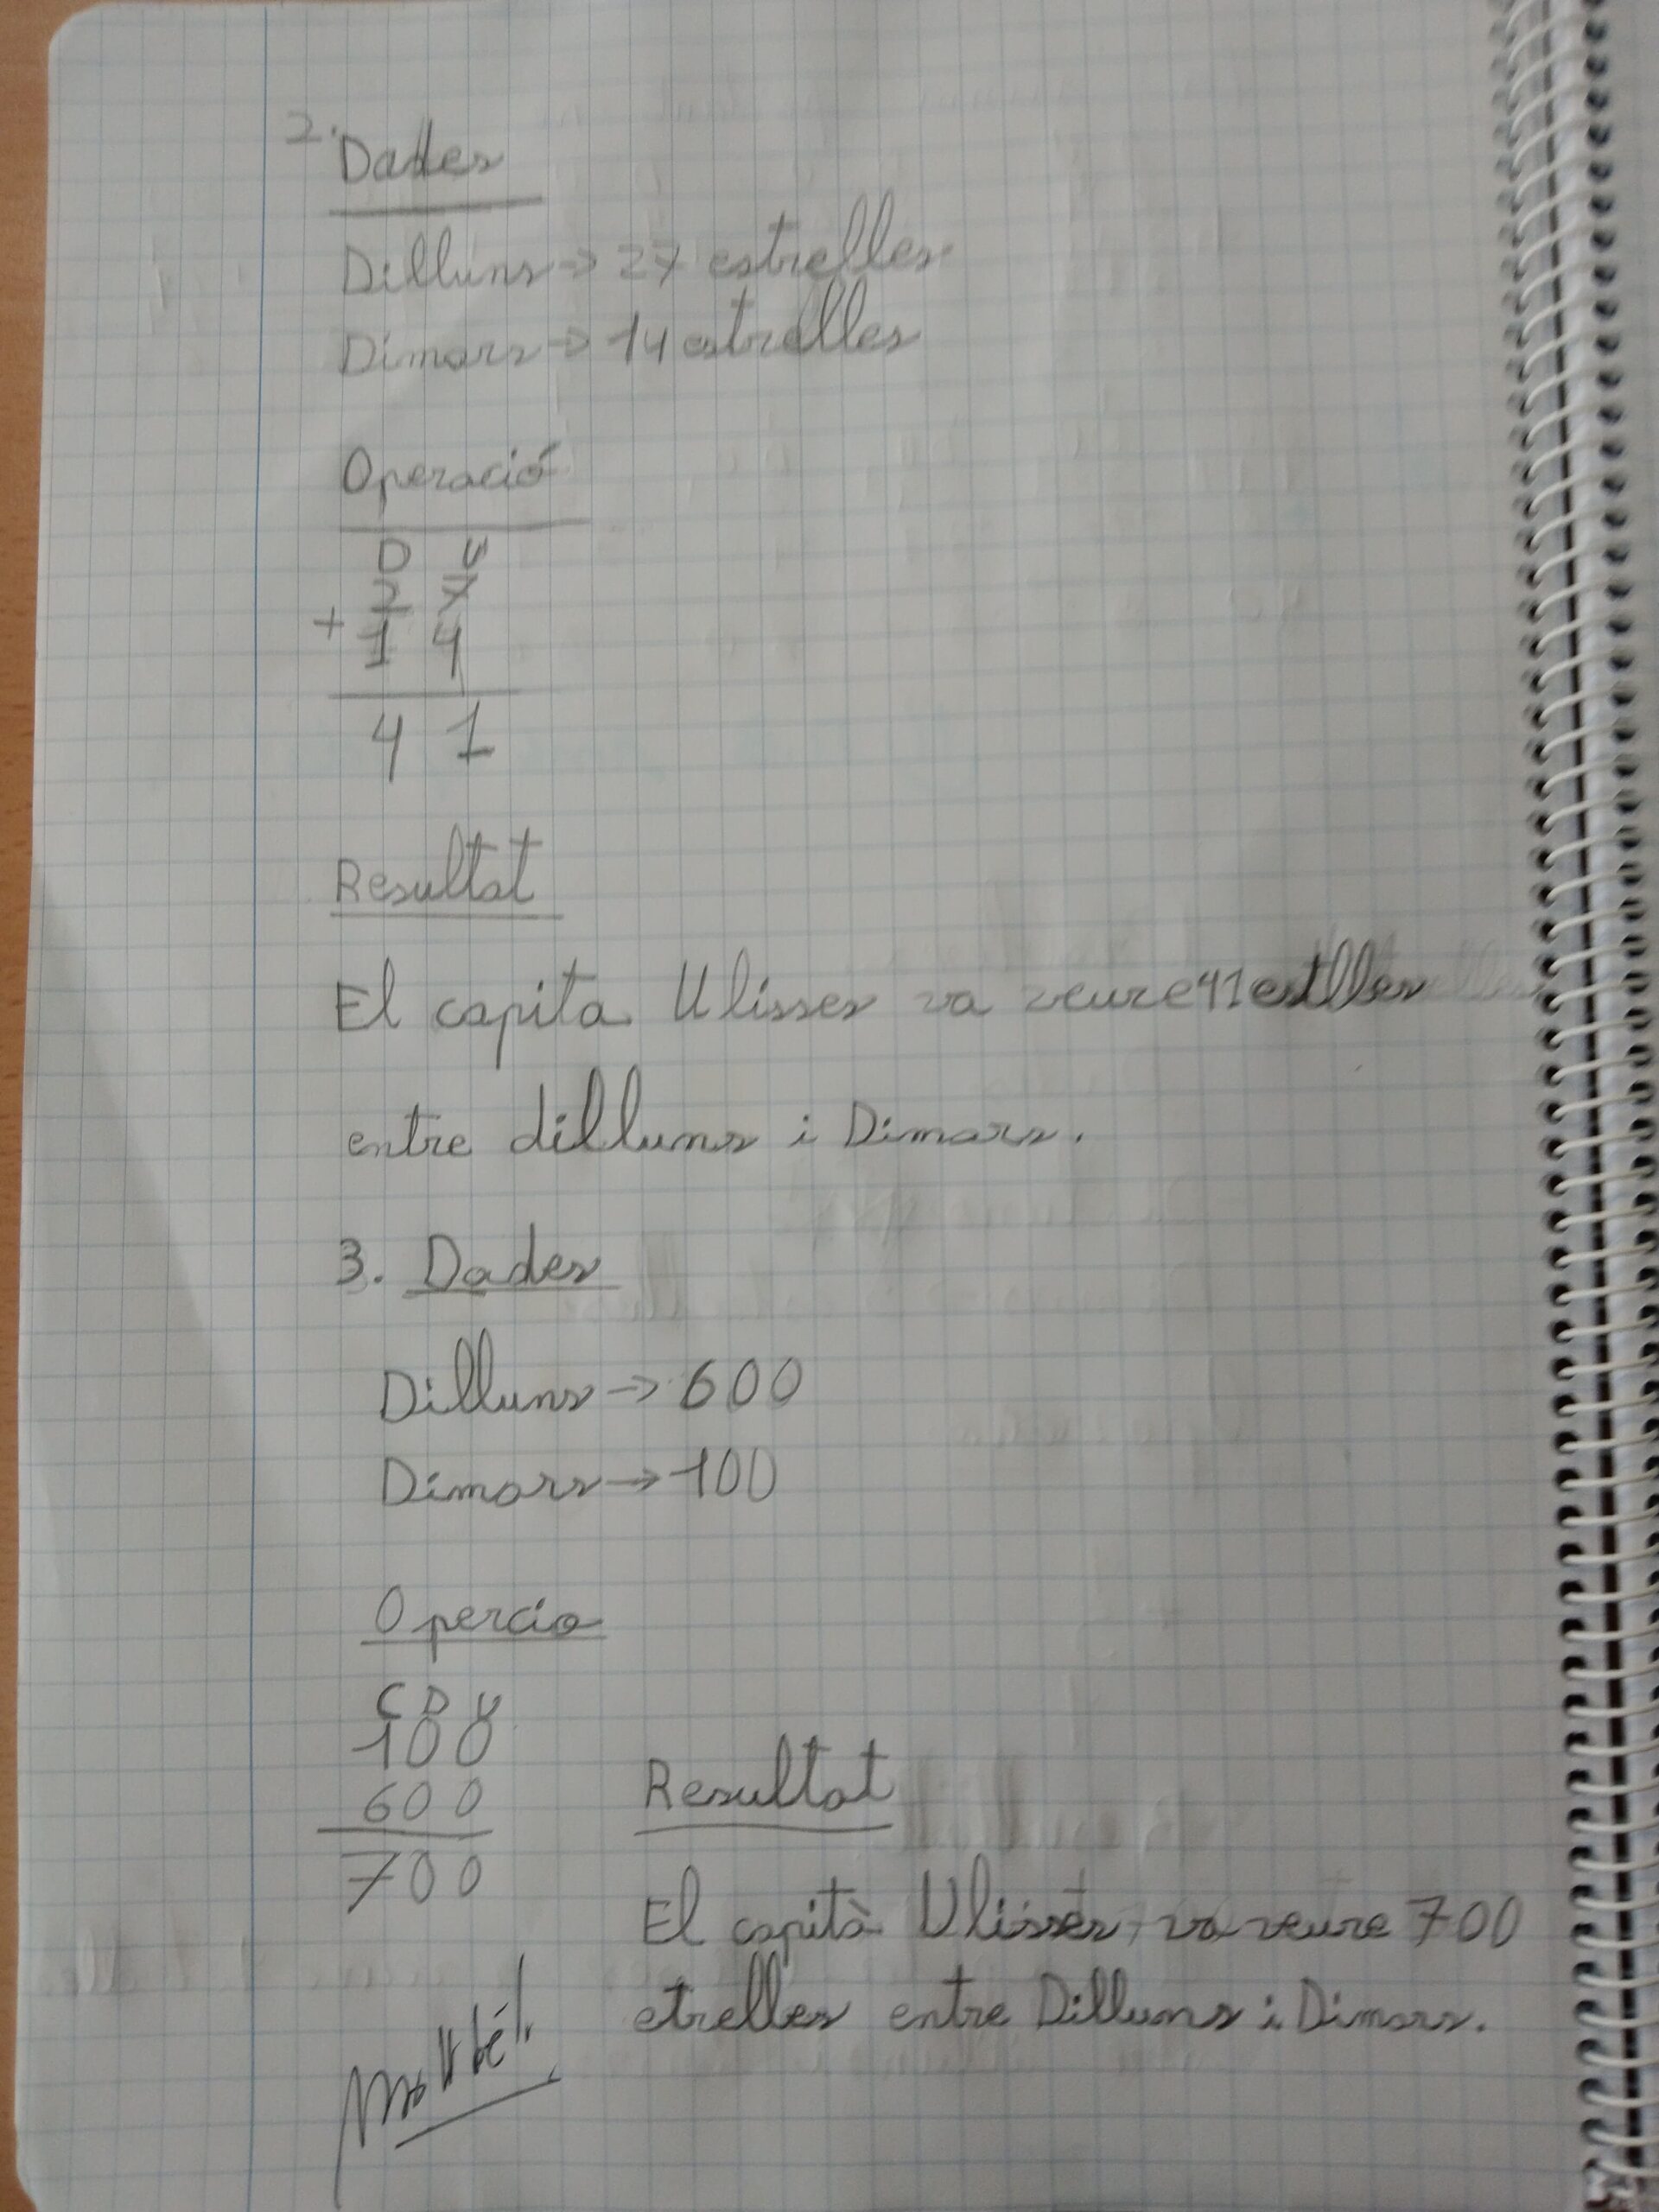 2.
Dades
Dilluns → 27 estrelles.
Dimars → 14 estrelles
Operació
D U
2 7
+ 1 4
4 1
Resultat
El capita Ulisses va veure 41 estlles
entre dilluns i Dimars.
3. Dades
Dilluns → 600
Dimars → 100
Opercio
C D U
100
600
700
Resultat
El capità Ulisses, va veure 700
etrelles entre Dilluns i Dimars.
Molt bé!!